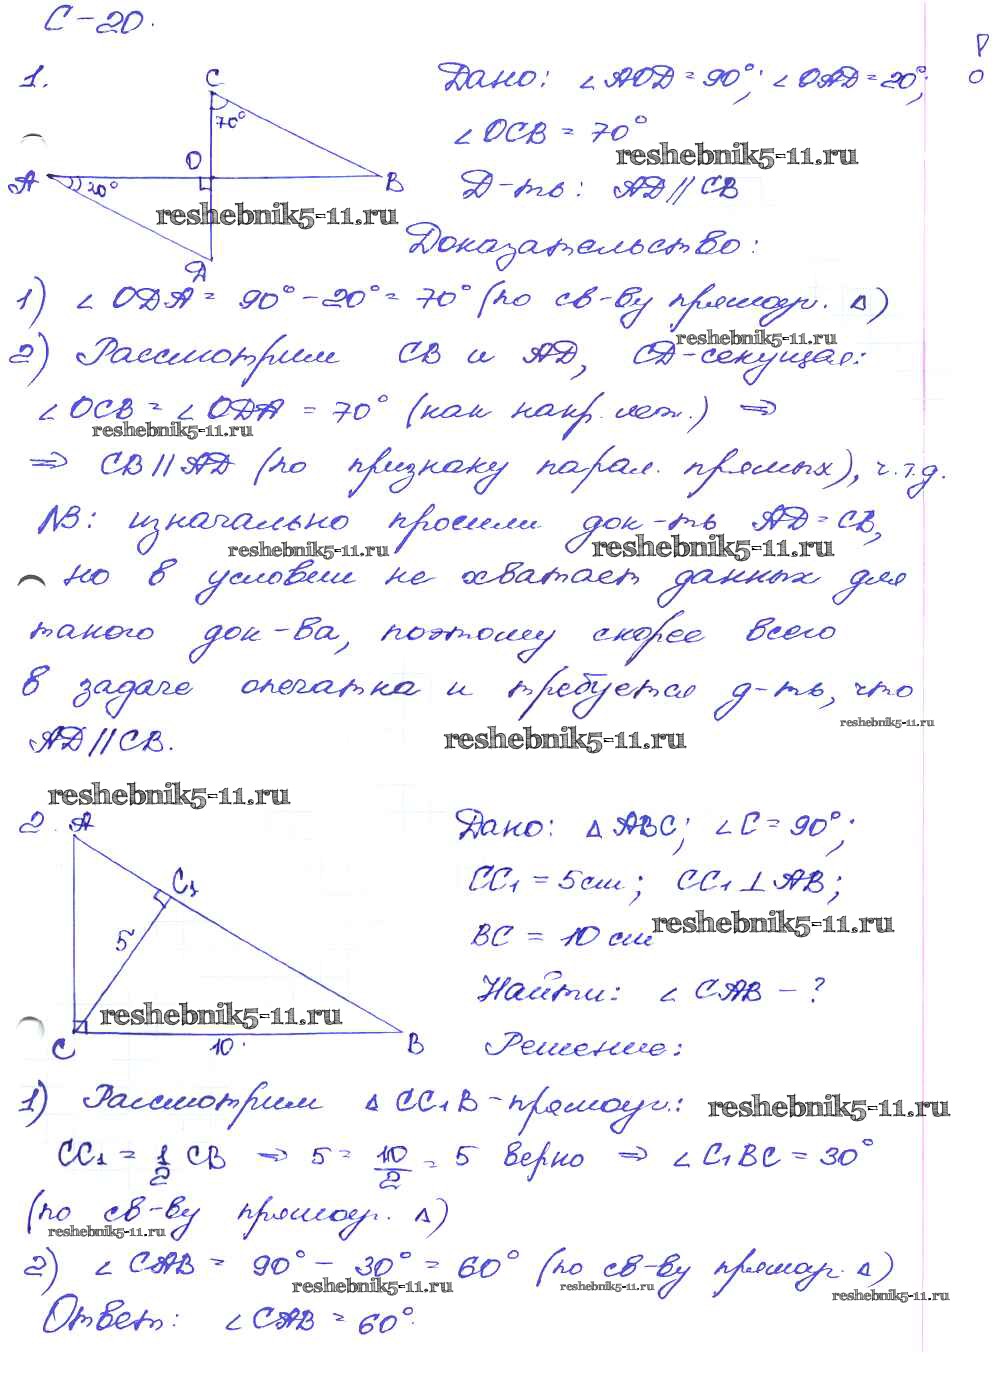 С-20.
1.
C
70°
O
A
20°
B
Д
Дано: ∠AOД = 90°; ∠OAД = 20°;
∠OCB = 70°
reshebnik5-11.ru
Д-ть: AД // CB
reshebnik5-11.ru
Доказательство:
1) ∠OДA = 90° - 20° = 70° (по св-ву прямоуг. Δ)
reshebnik5-11.ru
2) Рассмотрим CB и AД, CД-секущая:
∠OCB = ∠OДA = 70° (как накр. леж.) ⇒
reshebnik5-11.ru
⇒ CB // AД (по признаку парал. прямых), ч.т.д.
NB: изначально просили док-ть AД = CB,
reshebnik5-11.ru
reshebnik5-11.ru
но в условии не хватает данных для
такого док-ва, поэтому скорее всего
в задаче опечатка и требуется д-ть, что
reshebnik5-11.ru
AД // CB.
reshebnik5-11.ru
reshebnik5-11.ru
2.
A
C₁
5
C
10
B
Дано: Δ ABC; ∠C = 90°;
CC₁ = 5см; CC₁ ⊥ AB;
reshebnik5-11.ru
BC = 10 см
Найти: ∠CAB - ?
reshebnik5-11.ru
Решение:
1) Рассмотрим Δ CC₁B - прямоуг.:
reshebnik5-11.ru
CC₁ = 1/2 CB ⇒ 5 = 10/2 = 5 верно ⇒ ∠C₁BC = 30°
(по св-ву прямоуг. Δ)
reshebnik5-11.ru
2) ∠CAB = 90° - 30° = 60° (по св-ву прямоуг. Δ)
reshebnik5-11.ru
reshebnik5-11.ru
reshebnik5-11.ru
Ответ: ∠CAB = 60°.